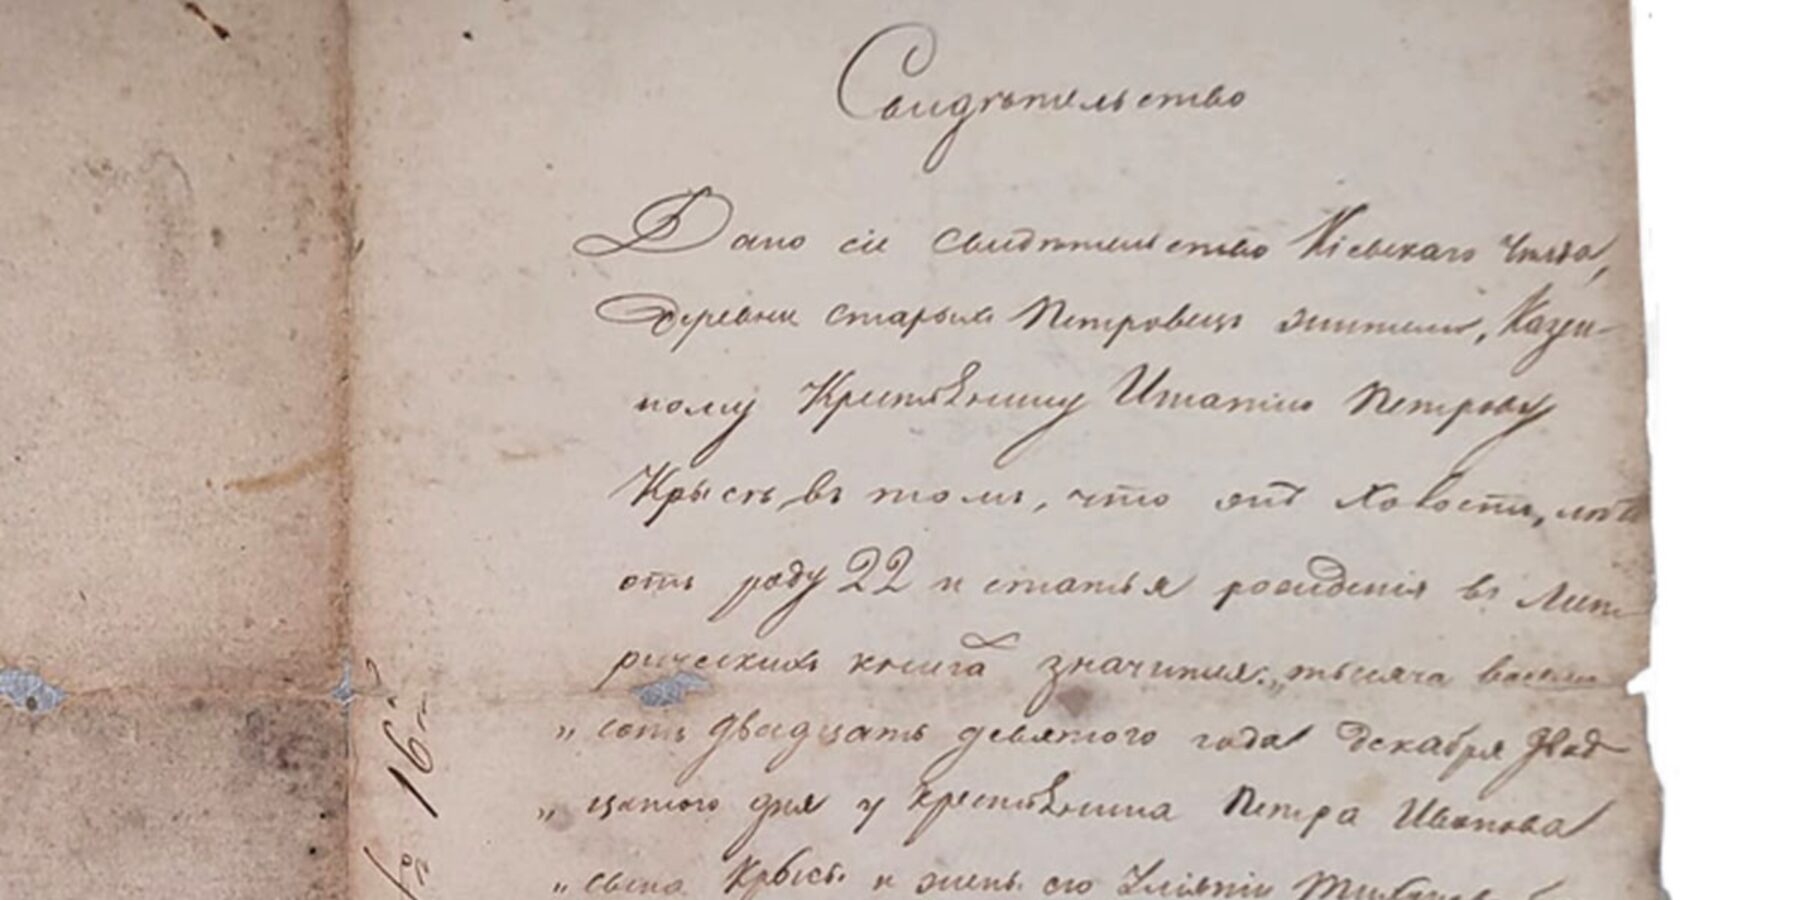 Свидѣтельство
Дано сіе свидѣтельство Кіевскаго уѣзда,
деревни старыхъ Петровецъ жителю, Казен-
ному Крестьянину Игнатію Петрову
Крысь, въ томъ, что онъ холостъ, лѣтъ
отъ роду 22 и статья рожденія въ Мет-
рическихъ книга значится: „тысяча восемь
„сотъ двадцать девятого года декабря двад-
„цатого дня у крестьянина Петра Иванова
„сына Крысь и жены его
16